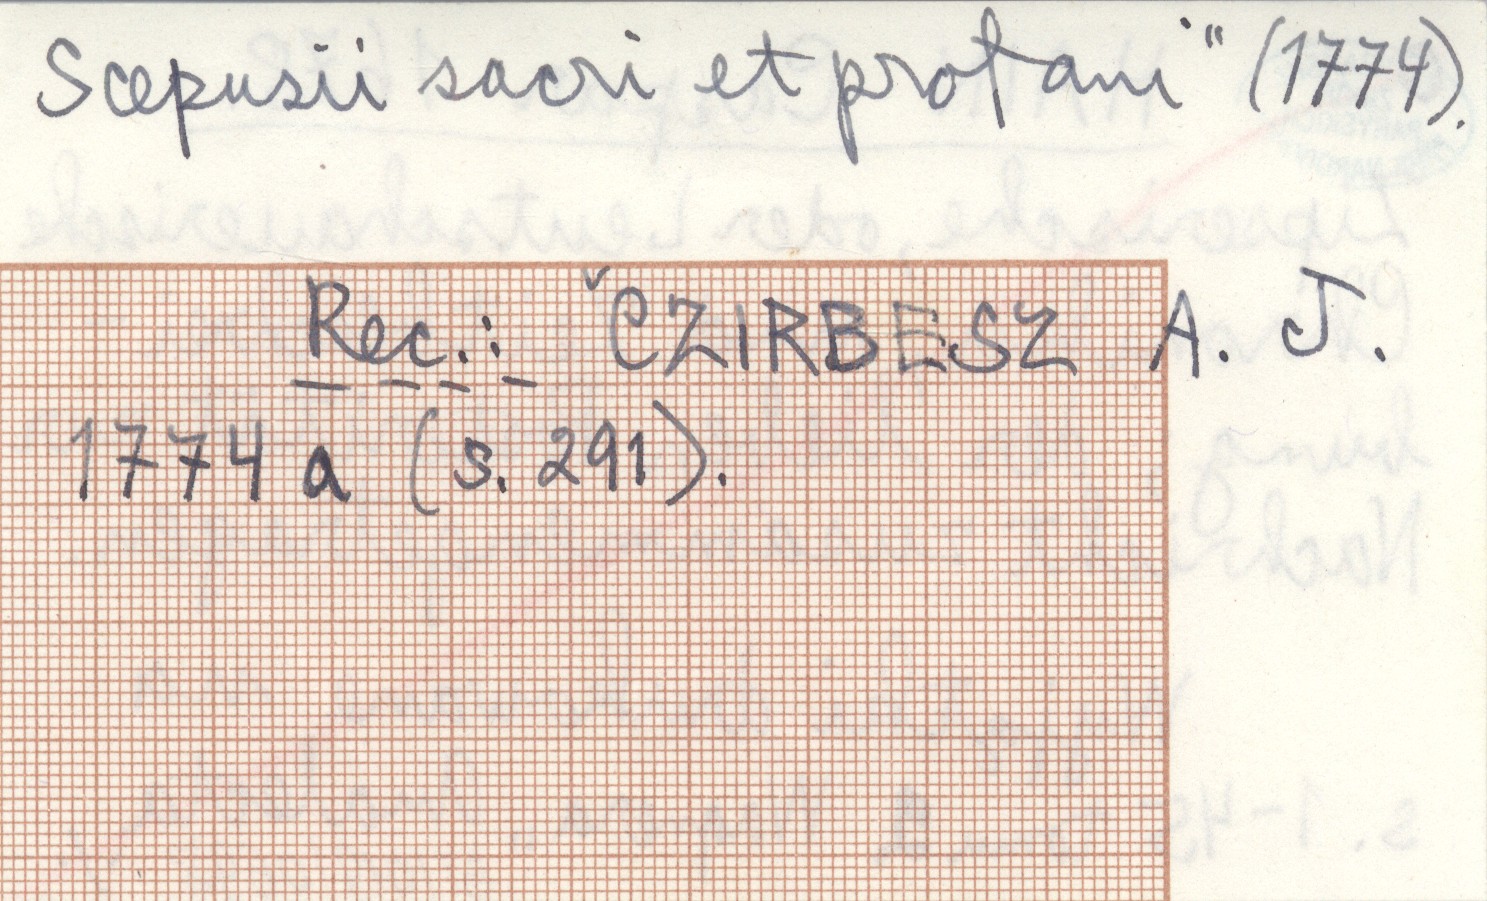 Scepusii sacri et profani" (1774).
Rec.: ČZIRBESZ A. J.
1774 a (s. 291).